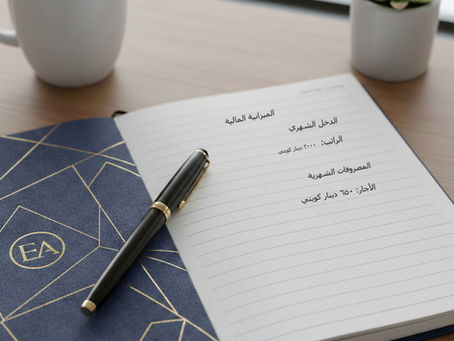 الميزانية المالية
الدخل الشهري
الراتب: ٢٠٠٠ دينار كويتي
المصروفات الشهرية
الأجار: ٦٥٠ دينار كويتي
EA